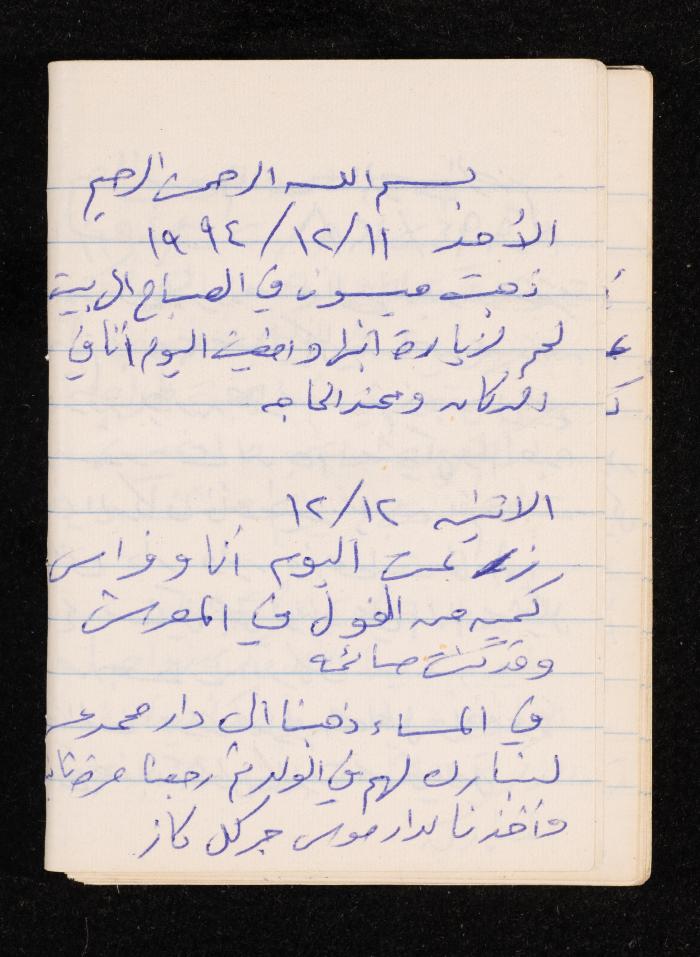 بسم الله الرحمن الرحيم
الأحد ١٩٩٤/١٢/١١
ذهبت ميسون في الصباح الى بيت
لحم لزيارة ابنها وامضيت اليوم أنا في
الدكان وعند الحاجه
الاثنين ١٢/١٢
زرعت اليوم أنا وفراس
كميه من الفول في المعرش
وقد كنت صائمه
في المساء ذهبنا الى دار محمد
لنبارك لهم في الولد ثم رجعنا
وأخذنا لدار موسى جركل كاز